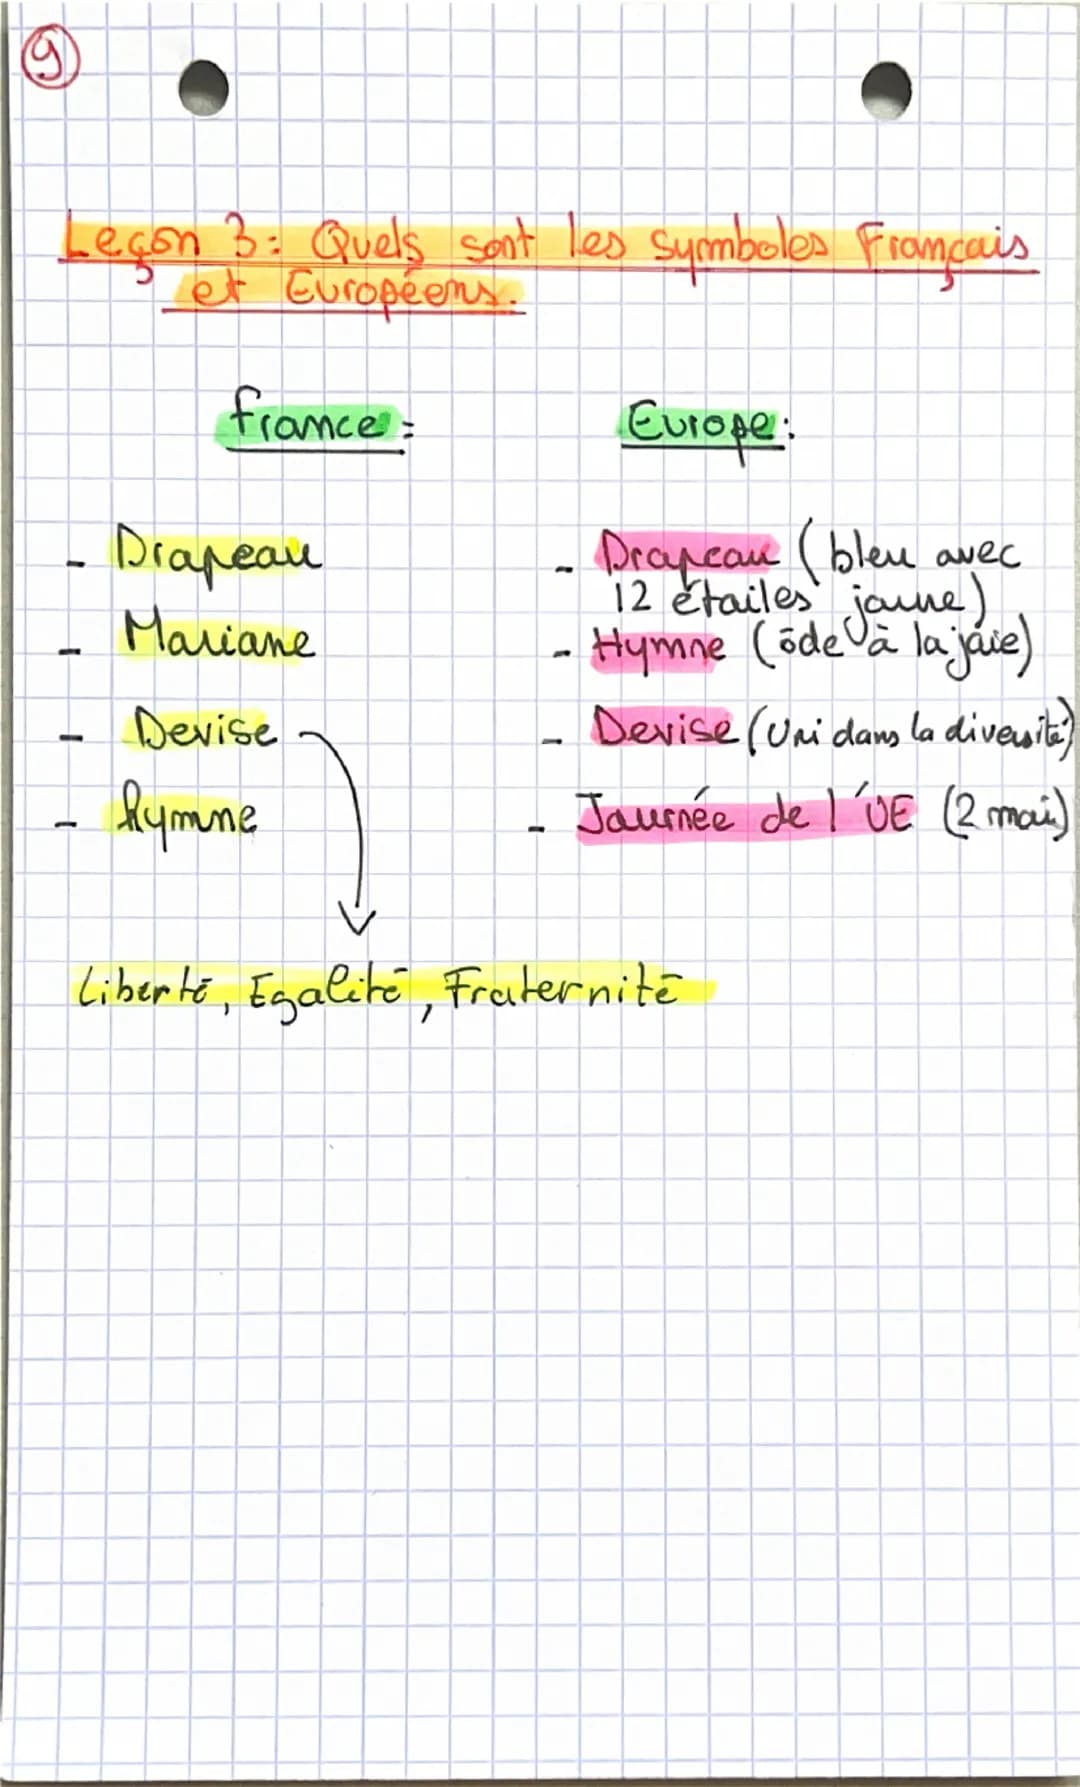 9
Leçon 3: Quels sont les symboles Français
et Européens.
france :
- Drapeau
- Mariane
- Devise
- hymne
Liberté, Egalité, Fraternité
Europe :
- Drapeau (bleu avec
12 étoiles jaune)
- Hymne (ôde à la joie)
- Devise (Uni dans la diversité)
- Journée de l'UE (2 mai)